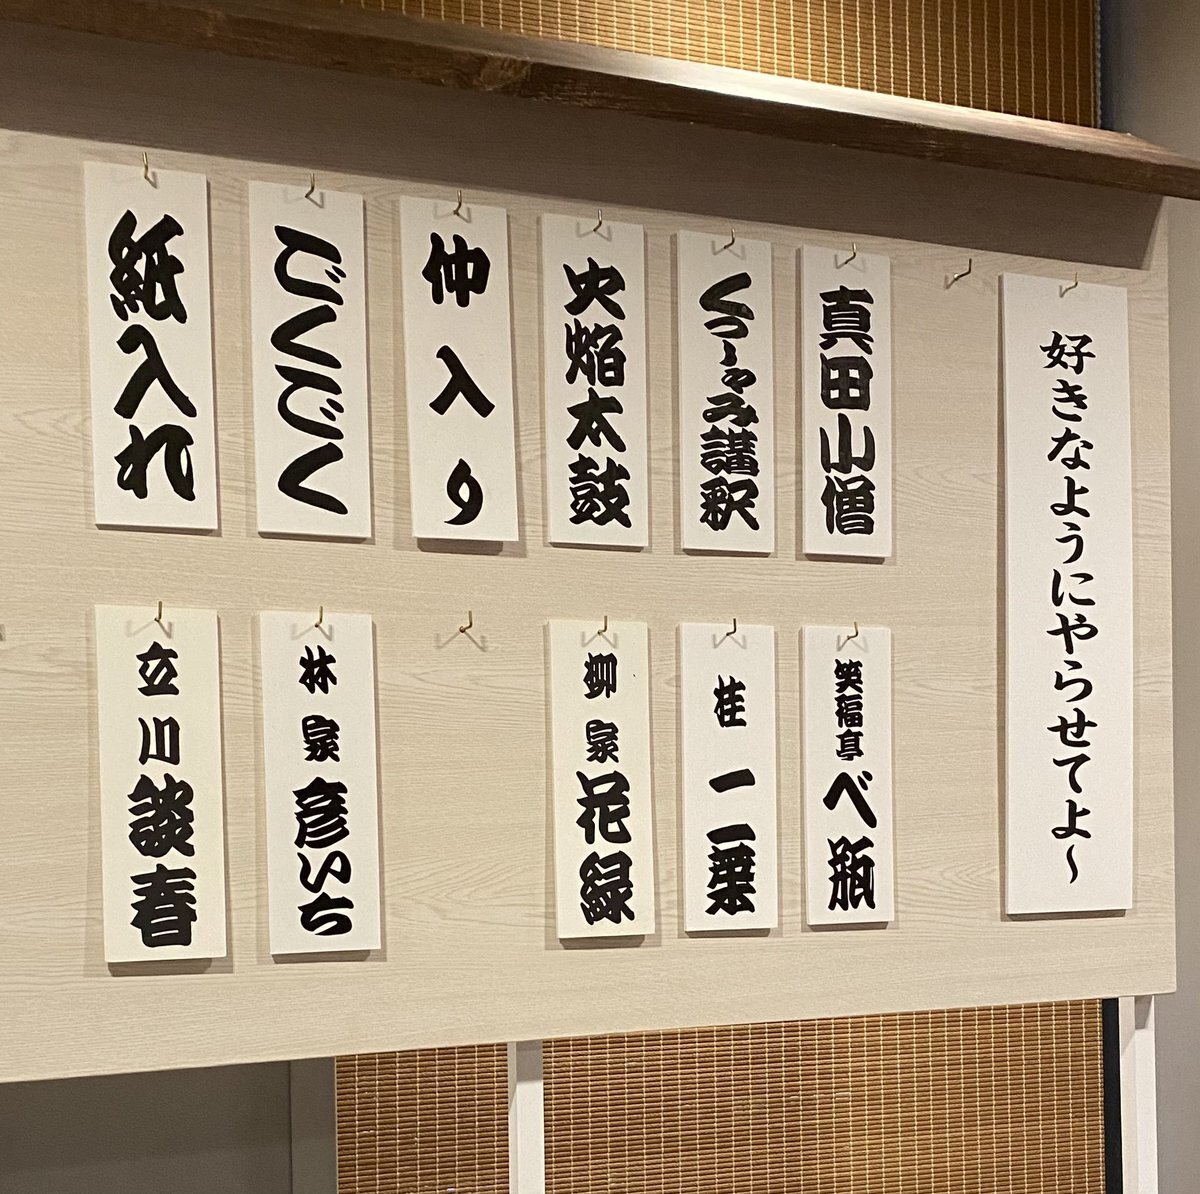 好きなようにやらせてよ〜
真田小僧
笑福亭べ瓶
くっしゃみ講釈
桂二葉
火焔太鼓
柳家花緑
仲入り
ごくごく
林家彦いち
紙入れ
立川談春